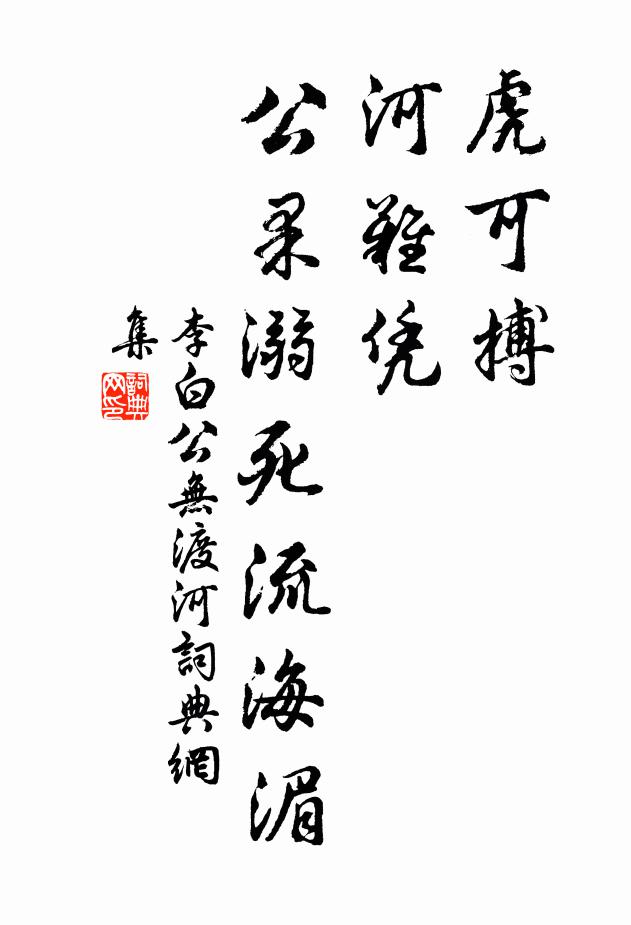 虎可搏
河難凭
公果溺死流海湄
李白公無渡河詞典網
集
詞典
网印